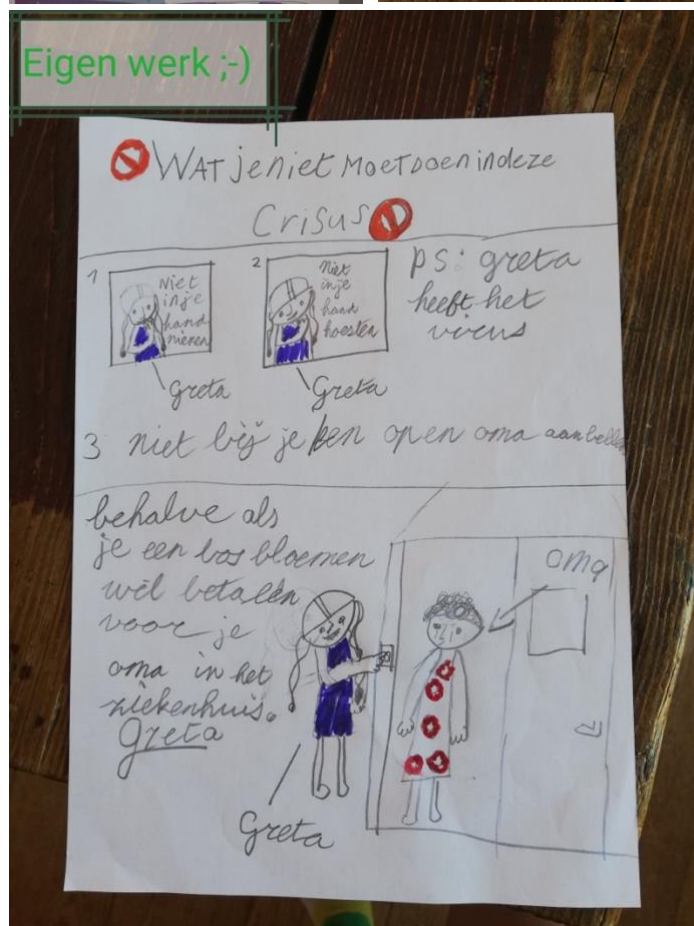 Eigen werk ;-)
WAT je niet MoeT Doen in deze
Crisus
1
Niet
in je
hand
niezen
Greta
2
Niet
in je
hand
hoesten
Greta
PS: greta
heeft het
virus
3 niet bij je en open oma aanbellen
behalve als
je een bos bloemen
wil betalen
voor je
oma in het
ziekenhuis.
Greta
Greta
oma